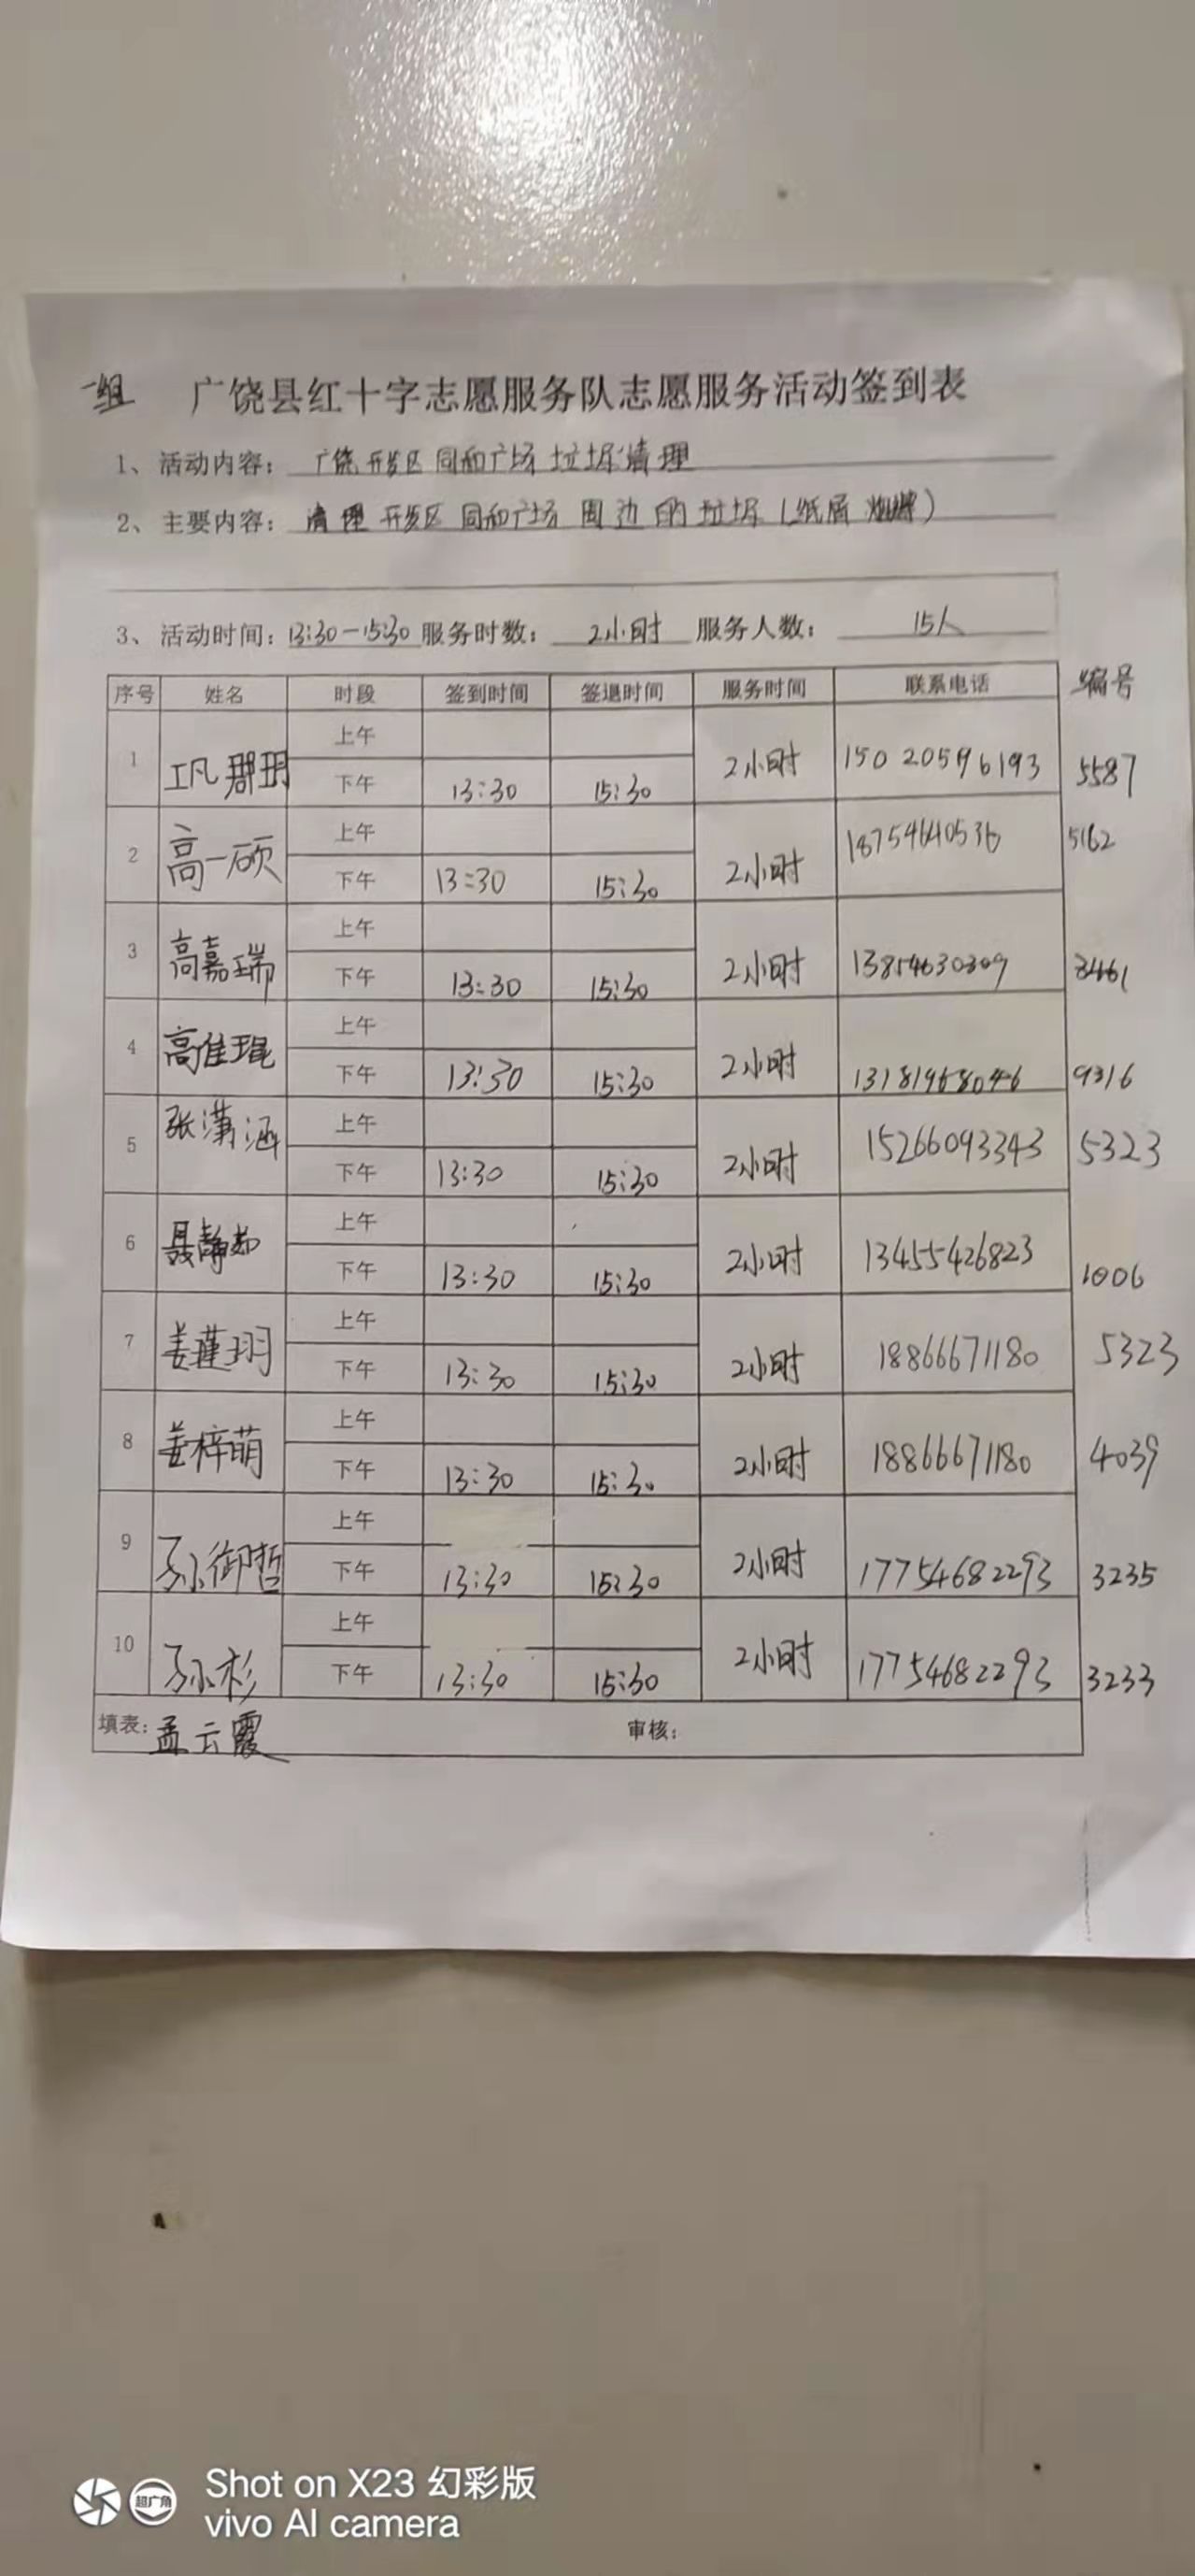 一组 广饶县红十字志愿服务队志愿服务活动签到表
1、活动内容: 广饶开发区同和广场垃圾清理
2、主要内容: 清理开发区同和广场周边的垃圾(纸屑 )
3、活动时间: 13:30-15:30 服务时数: 2小时 服务人数: 15人
序号 姓名 时段 签到时间 签退时间 服务时间 联系电话 编号
上午
1 下午 13:30 15:30 2小时 15020596193 5587
上午
2 高一硕 下午 13:30 15:30 2小时 18754640536 5162
上午
3 高嘉瑞 下午 13:30 15:30 2小时
上午
4 高佳琨 下午 13:30 15:30 2小时 9316
上午
5 张潇涵 下午 13:30 15:30 2小时 15266093343 5323
上午
6 聂静茹 下午 13:30 15:30 2小时 13455426823 1006
上午
7 姜蕴玥 下午 13:30 15:30 2小时 18866671180 5323
上午
8 姜梓萌 下午 13:30 15:30 2小时 18866671180 4039
上午
9 孙御哲 下午 13:30 15:30 2小时 17754682293 3235
上午
10 孙杉 下午 13:30 15:30 2小时 17754682293 3233
填表: 孟云霞 审核:
超广角
Shot on X23 幻彩版
vivo AI camera